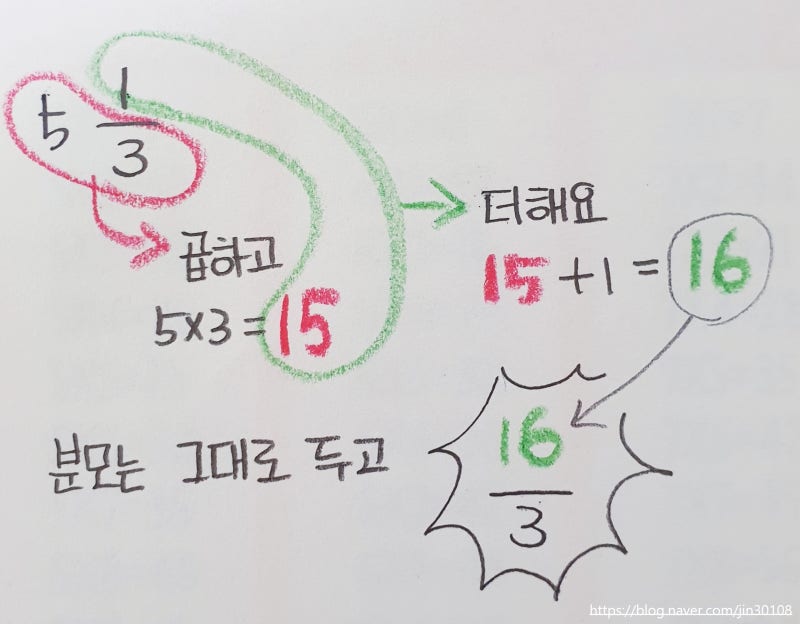 5 1/3
곱하고
5×3=15
더해요
15+1=16
분모는 그대로 두고
16/3
https://blog.naver.com/jin30108